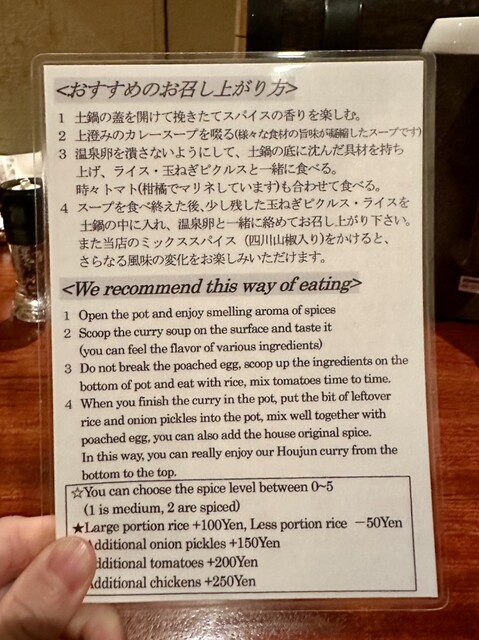 <おすすめのお召し上がり方>
1 土鍋の蓋を開けて挽きたてスパイスの香りを楽しむ。
2 上澄みのカレースープを啜る(様々な食材の旨味が凝縮したスープです)
3 温泉卵を潰さないようにして、土鍋の底に沈んだ具材を持ち
上げ、ライス・玉ねぎピクルスと一緒に食べる。
時々トマト(柑橘でマリネしています)も合わせて食べる。
4 スープを食べ終えた後、少し残した玉ねぎピクルス・ライスを
土鍋の中に入れ、温泉卵と一緒に絡めてお召し上がり下さい。
また当店のミックススパイス(四川山椒入り)をかけると、
さらなる風味の変化をお楽しみいただけます。
<We recommend this way of eating>
1 Open the pot and enjoy smelling aroma of spices
2 Scoop the curry soup on the surface and taste it
(you can feel the flavor of various ingredients)
3 Do not break the poached egg, scoop up the ingredients on the
bottom of pot and eat with rice, mix tomatoes time to time.
4 When you finish the curry in the pot, put the bit of leftover
rice and onion pickles into the pot, mix well together with
poached egg, you can also add the house original spice.
In this way, you can really enjoy our Houjun curry from the
bottom to the top.
☆You can choose the spice level between 0~5
(1 is medium, 2 are spiced)
★Large portion rice +100Yen, Less portion rice －50Yen
Additional onion pickles +150Yen
Additional tomatoes +200Yen
Additional chickens +250Yen